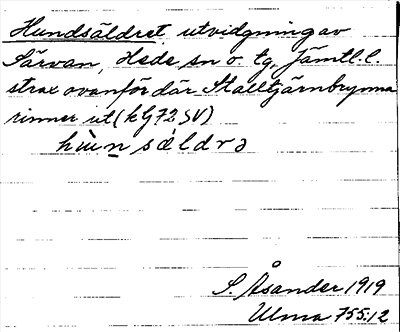 Hundsäldret, utvidgning av
Särvan, Hede sn o. tg, Jämtl. l.
strax ovanför där Stalltjärnbrynna
rinner ut (kG72SV)
hùnsə́ldrə
S. Åsander 1919
Ulma 755:12